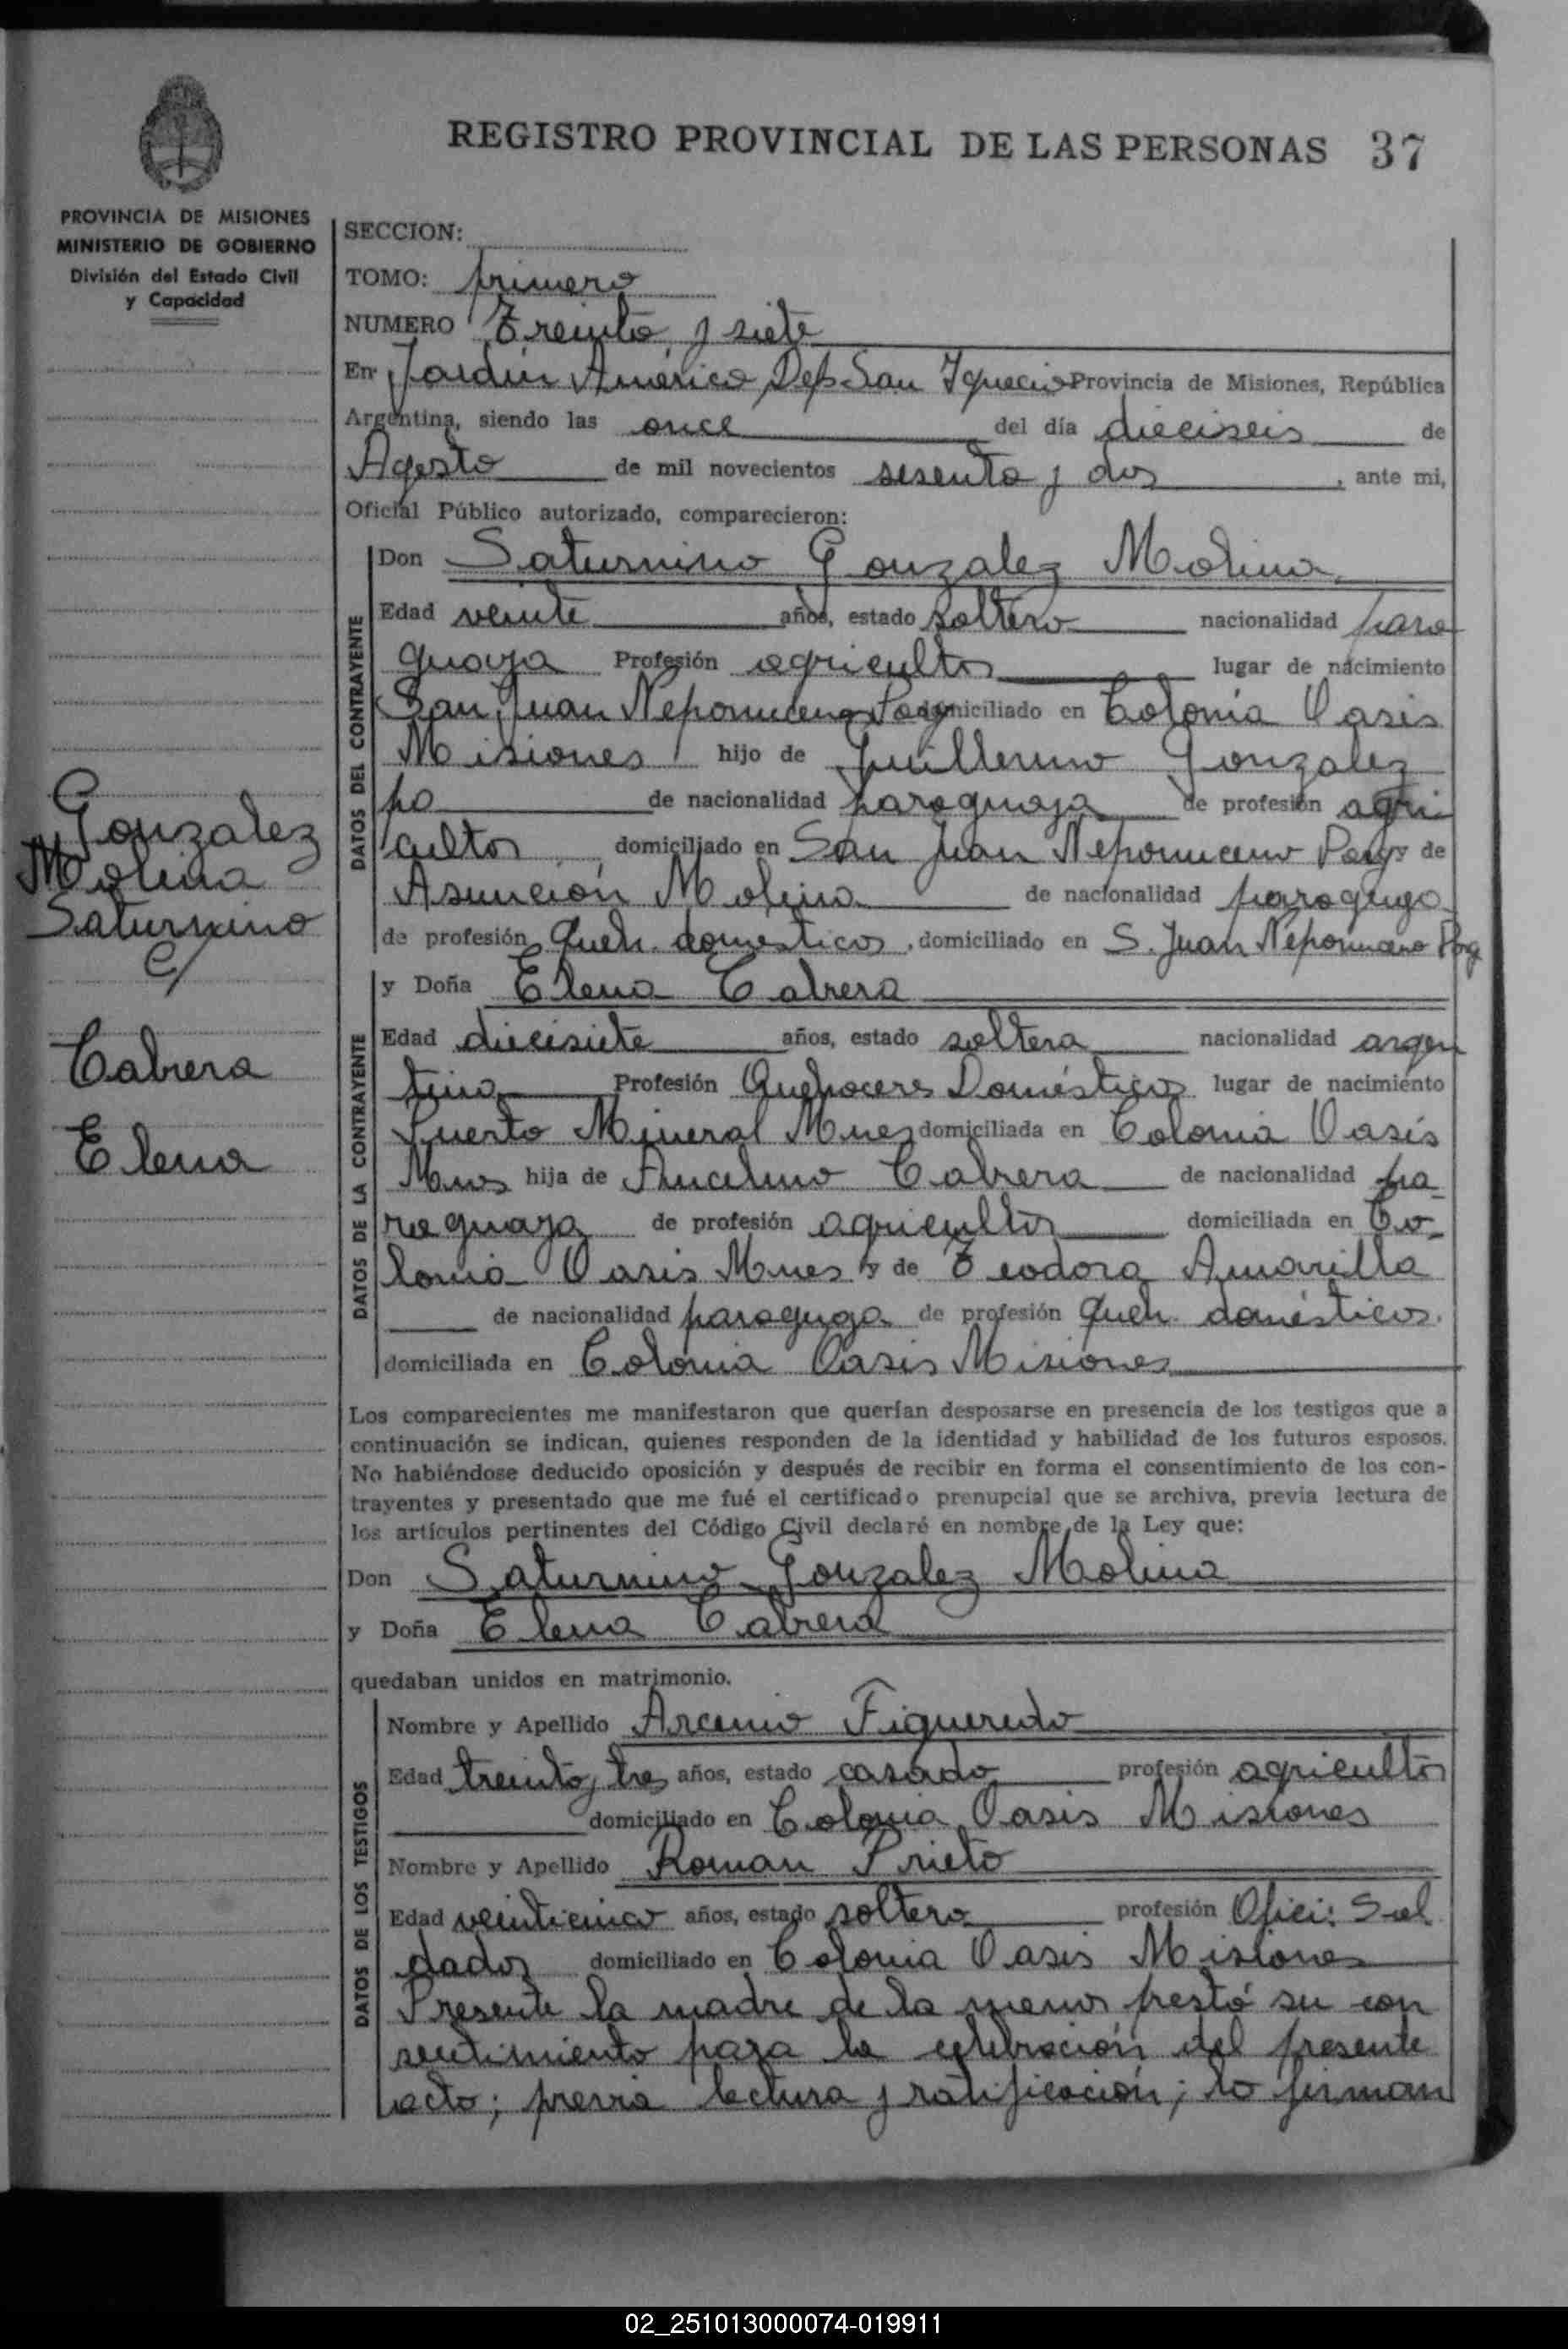 REGISTRO PROVINCIAL DE LAS PERSONAS 37
PROVINCIA DE MISIONES
MINISTERIO DE GOBIERNO
División del Estado Civil
y Capacidad
SECCION:
TOMO: primero
NUMERO Treinta y siete
En Jardín América Dep. San Ignacio Provincia de Misiones, República
Argentina, siendo las once del día dieciseis de
Agosto de mil novecientos sesenta y dos, ante mi,
Oficial Público autorizado, comparecieron:
Gonzalez
Molina
Saturnino
c/
Cabrera
Elena
DATOS DEL CONTRAYENTE
Don Saturnino Gonzalez Molina
Edad veinte años, estado soltero nacionalidad para
guaya Profesión agricultor lugar de nacimiento
San Juan Nepomuceno Pargy domiciliado en Colonia Oasis
Misiones hijo de Guillermo Gonzalez
de nacionalidad paraguaya de profesión agri
cultor domiciliado en San Juan Nepomuceno Pargy y de
Asunción Molina de nacionalidad paraguaya
de profesión Queh. domesticos, domiciliado en S. Juan Nepomuceno Parg
DATOS DE LA CONTRAYENTE
y Doña Elena Cabrera
Edad diecisiete años, estado soltera nacionalidad argen
tina Profesión Quehaceres Domésticos lugar de nacimiento
Puerto Mineral Mnes domiciliada en Colonia Oasis
Mnes hija de Ancelmo Cabrera de nacionalidad pa-
raguaya de profesión agricultor domiciliada en Co-
lonia Oasis Mnes y de Teodora Amarilla
de nacionalidad paraguaya de profesión Queh. domésticos.
domiciliada en Colonia Oasis Misiones
Los comparecientes me manifestaron que querían desposarse en presencia de los testigos que a
continuación se indican, quienes responden de la identidad y habilidad de los futuros esposos.
No habiéndose deducido oposición y después de recibir en forma el consentimiento de los con-
trayentes y presentado que me fué el certificado prenupcial que se archiva, previa lectura de
los artículos pertinentes del Código Civil declaré en nombre de la Ley que:
Don Saturnino Gonzalez Molina
y Doña Elena Cabrera
quedaban unidos en matrimonio.
DATOS DE LOS TESTIGOS
Nombre y Apellido Arcenio Figueredo
Edad treinta y tres años, estado casado profesión agricultor
domiciliado en Colonia Oasis Misiones
Nombre y Apellido Roman Prieto
Edad veinticinco años, estado soltero profesión Ofici: Sol
dador domiciliado en Colonia Oasis Misiones
Presente la madre de la menor prestó su con
sentimiento para la celebración del presente
acto; previa lectura y ratificación; lo firman
02_251013000074-019911